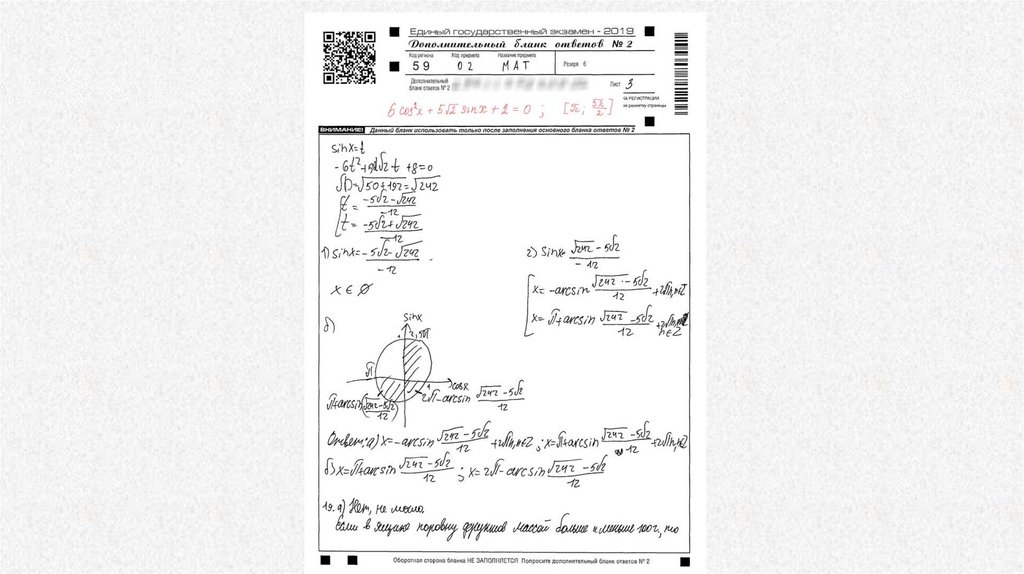 Единый государственный экзамен - 2019
Дополнительный бланк ответов № 2
Код региона Код предмета Название предмета
59 02 МАТ Резерв 6
Дополнительный бланк ответов № 2
Лист 3
6 cos²x + 5√2 sinx + 2 = 0 ; [π; 5π/2]
ВНИМАНИЕ! Данный бланк использовать только после заполнения основного бланка ответов № 2
sinx=t
-6t²+5√2 t +8=0
√D=√50+192=√242
t = (-5√2-√242)/-12
t = (-5√2+√242)/-12
1) sinx=(-5√2-√242)/-12
2) sinx=(√242-5√2)/-12
x ∈ ∅
x=-arcsin (√242-5√2)/12 +2πn, n∈Z
x=π+arcsin (√242-5√2)/12 +2πn, n∈Z
б)
sinx
1 2,5π
π
1 cosx
π+arcsin((√242-5√2)/12)
2π-arcsin (√242-5√2)/12
Ответ: а) x=-arcsin (√242-5√2)/12 +2πn, n∈Z ; x=π+arcsin (√242-5√2)/12 +2πn, n∈Z
б) x=π+arcsin (√242-5√2)/12 ; x=2π-arcsin (√242-5√2)/12
19. а) Нет, не могло.
Если в ящике поровну фруктов массой больше и меньше 100г, то
Оборотная сторона бланка НЕ ЗАПОЛНЯЕТСЯ Попросите дополнительный бланк ответов № 2